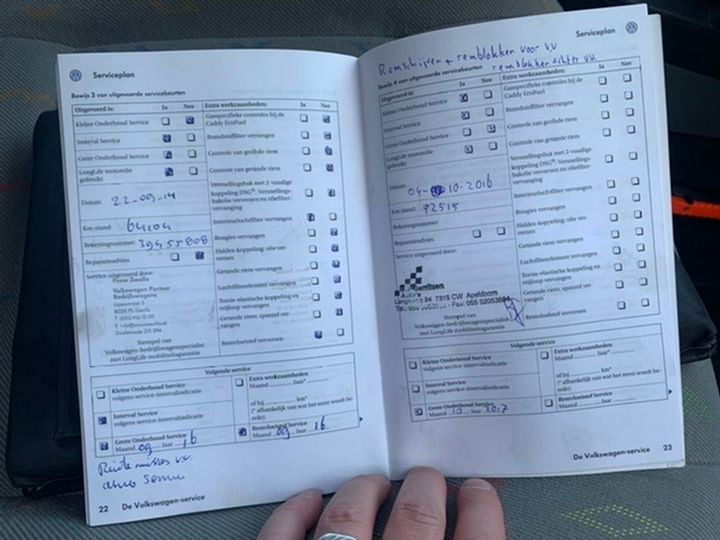 Serviceplan
Bewijs 3 van uitgevoerde servicebeurten
Uitgevoerd is: Ja Nee
Extra werkzaamheden: Ja Nee
Kleine Onderhoud Service
Interval Service
Grote Onderhoud Service
LongLife motorolie
gebruikt
Datum: 22-09-14
Km-stand:
Rekeningnummer: 39455808
Reparatieadvies
Service uitgevoerd door:
Pouw Zwolle
Volkswagen Partner
Bedrijfswagens
Stempel van
Volkswagen-bedrijfswagenspecialist
met LongLife mobiliteitsgarantie
Gasspecifieke controles bij de
Caddy EcoFuel
Brandstoffilter vervangen
Controle van geribde riem
Controle van getande riem
Versnellingsbak met 2-voudige
koppeling DSG®: Versnellings-
bakolie verversen en oliefilter-
vervanging
Interieurluchtfilter vervangen
Bougies vervangen
Haldex-koppeling: olie ver-
versen
Getande riem vervangen
Luchtfilterelement vervangen
Torsie-elastische koppeling en
vrijloop vervangen
Getande riem: spanrol ver-
vangen
Remvloeistof verversen
Volgende service
Kleine Onderhoud Service
volgens service-intervalindicatie
Interval Service
volgens service-intervalindicatie
Grote Onderhoud Service
Maand 09 Jaar 16
Extra werkzaamheden
Maand Jaar*
of bij km*
(* afhankelijk van wat het eerst wordt be-
reikt)
Remvloeistof Service
Maand 09 Jaar 16
22 De Volkswagen-service
Serviceplan
Remschijven + remblokken voor v.v
remblokken achter v.v.
Bewijs 4 van uitgevoerde servicebeurten
Uitgevoerd is: Ja Nee
Extra werkzaamheden: Ja Nee
Kleine Onderhoud Service
Interval Service
Grote Onderhoud Service
LongLife motorolie
gebruikt
Datum: 04-10-2016
Km-stand: 92515
Rekeningnummer:
Reparatieadvies
Service uitgevoerd door:
Gerritsen
24 7315 CW Apeldoorn
Stempel van
Volkswagen-bedrijfswagenspecialist
met LongLife mobiliteitsgarantie
Gasspecifieke controles bij de
Caddy EcoFuel
Brandstoffilter vervangen
Controle van geribde riem
Controle van getande riem
Versnellingsbak met 2-voudige
koppeling DSG®: Versnellings-
bakolie verversen en oliefilter-
vervanging
Interieurluchtfilter vervangen
Bougies vervangen
Haldex-koppeling: olie ver-
versen
Getande riem vervangen
Luchtfilterelement vervangen
Torsie-elastische koppeling en
vrijloop vervangen
Getande riem: spanrol ver-
vangen
Remvloeistof verversen
Volgende service
Kleine Onderhoud Service
volgens service-intervalindicatie
Interval Service
volgens service-intervalindicatie
Grote Onderhoud Service
Maand 10 Jaar 2017
Extra werkzaamheden
Maand Jaar*
of bij km*
(* afhankelijk van wat het eerst wordt be-
reikt)
Remvloeistof Service
Maand Jaar
De Volkswagen-service 23